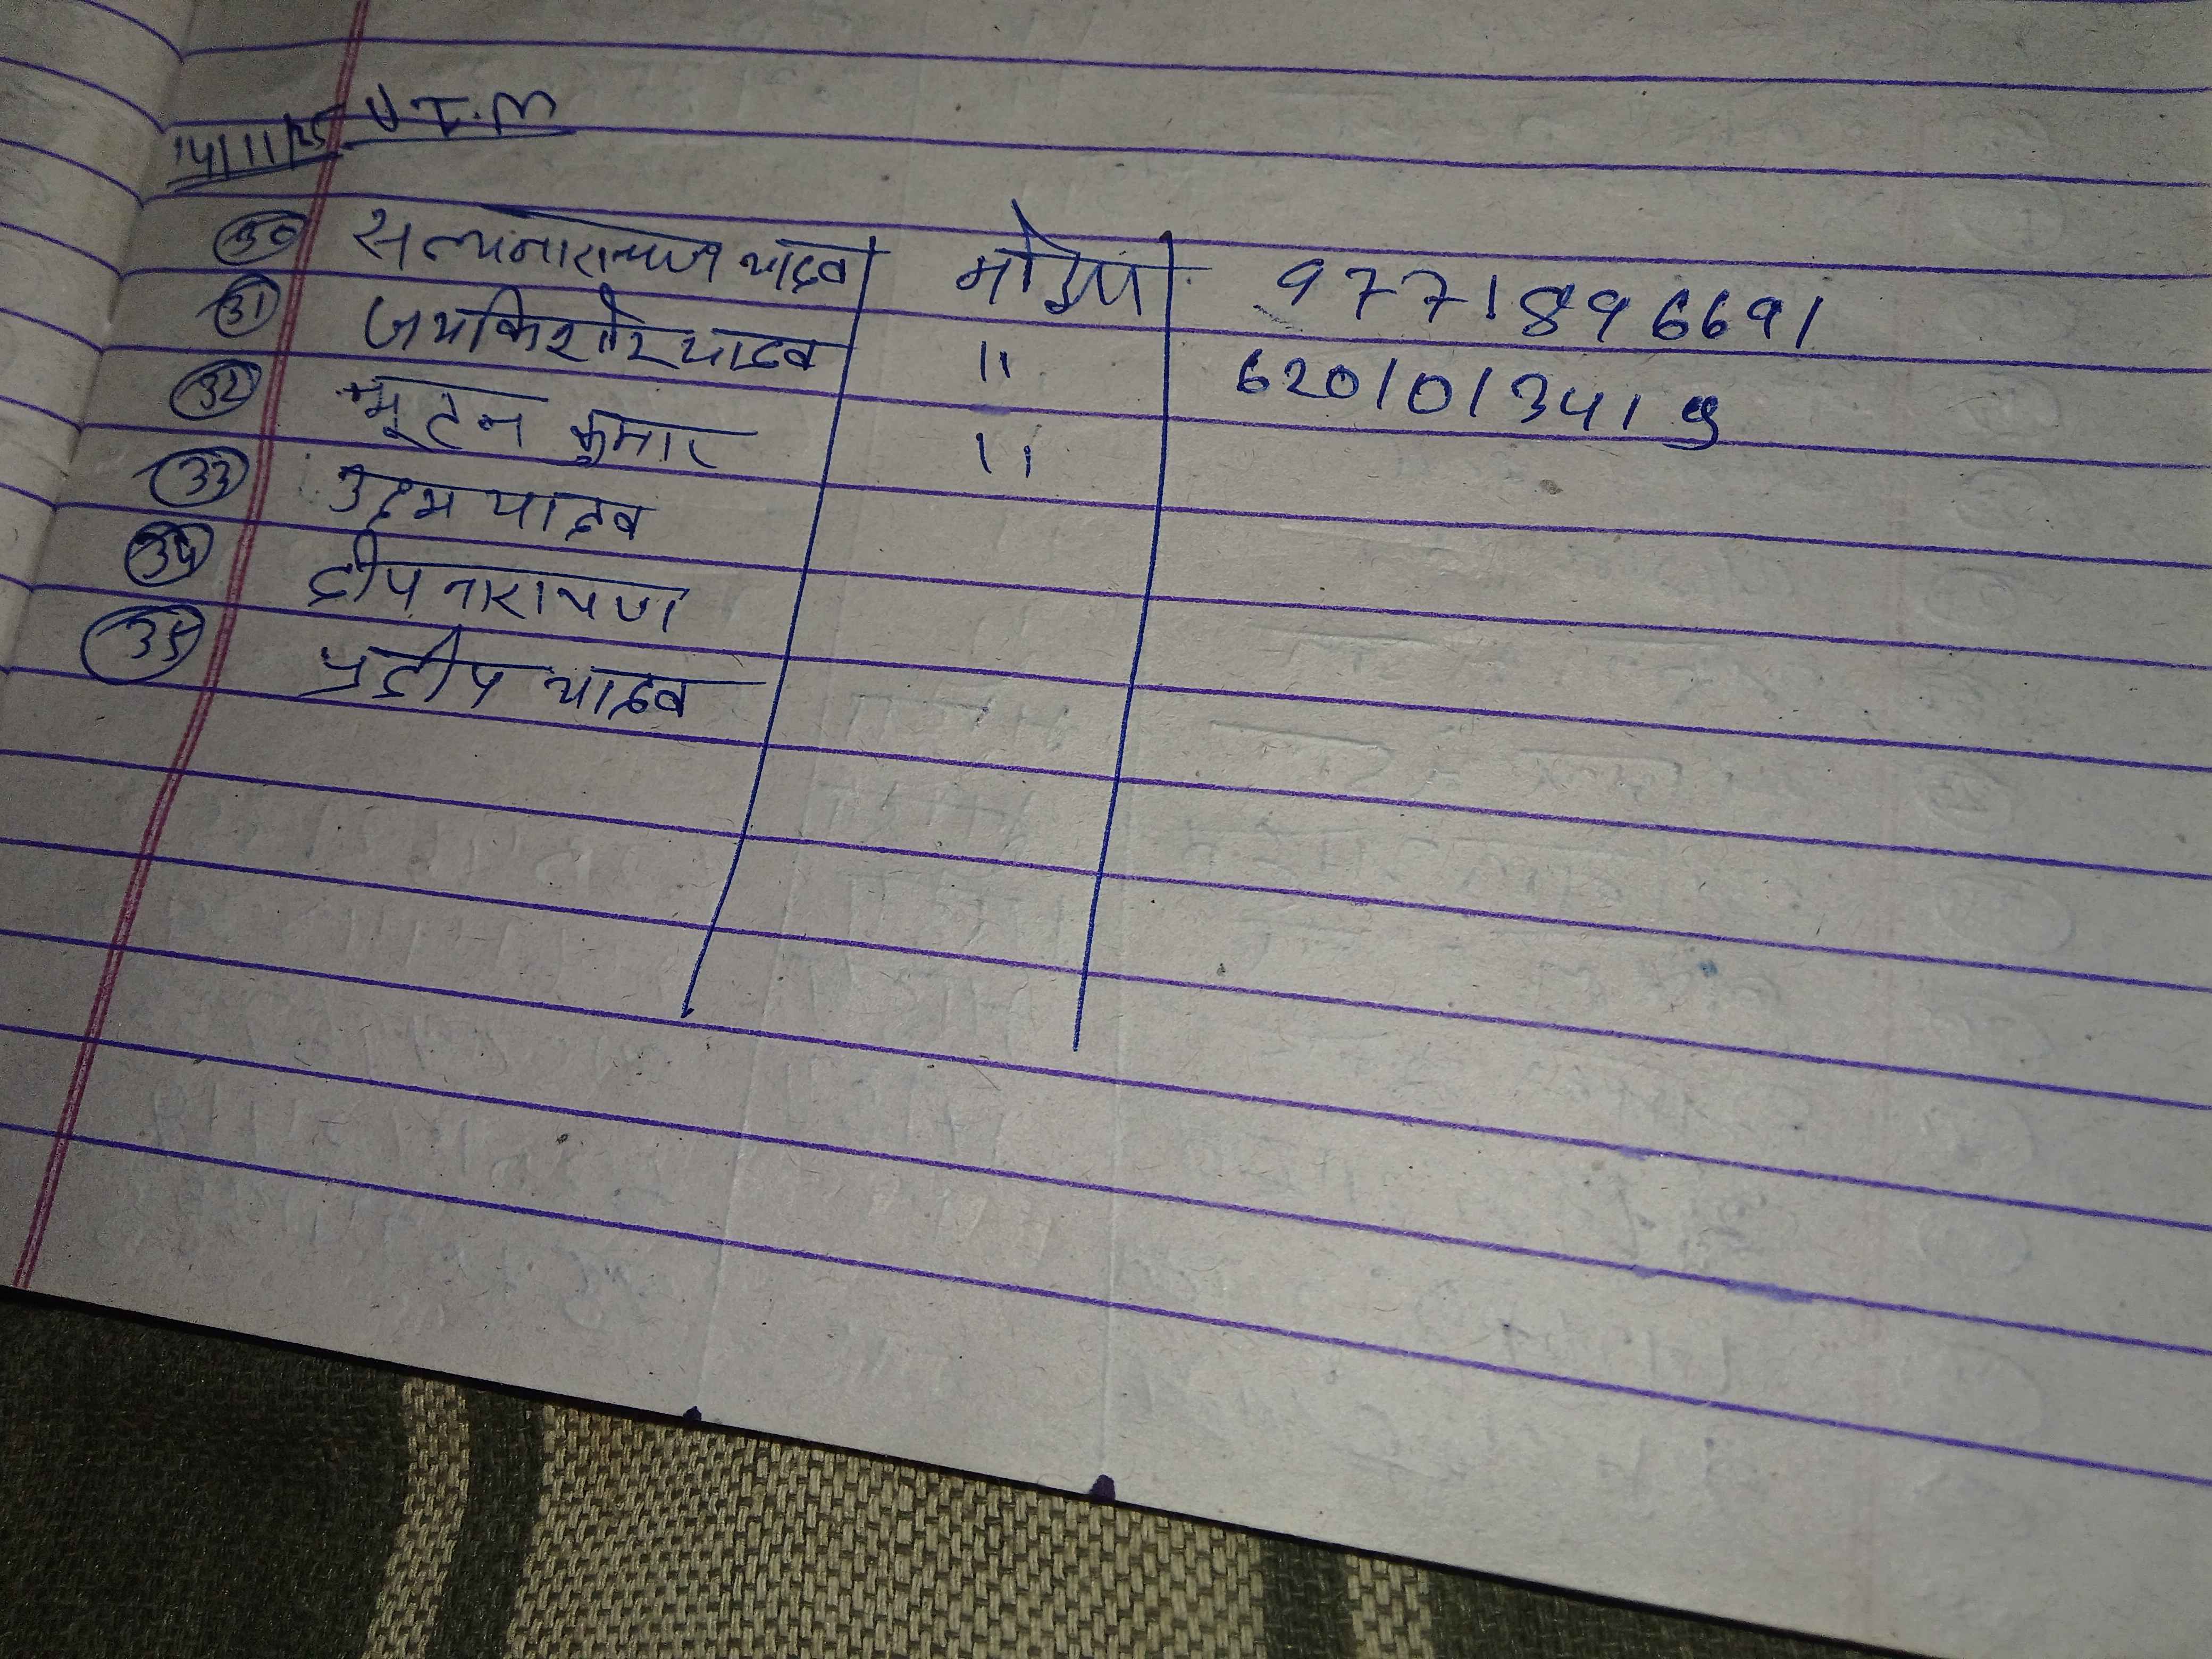 14/11/25 U.I.M
30 सत्यनारायण यादव मोड़प 9771896691
31 जयकिशोर यादव 11 620101341 9
32 भूटन कुमार 11
33 उदय यादव
34 दीप नारायण
35 प्रदीप यादव